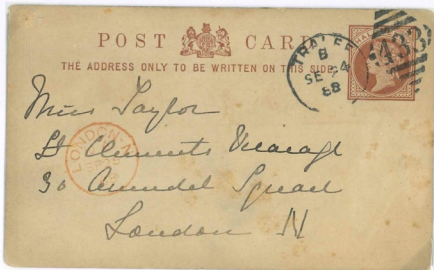 POST CARD
THE ADDRESS ONLY TO BE WRITTEN ON THIS SIDE
TRALEE
B
SE 4
88
Miss Taylor
St Clements Vicarage
30 Arundel Square
London N
LONDON N